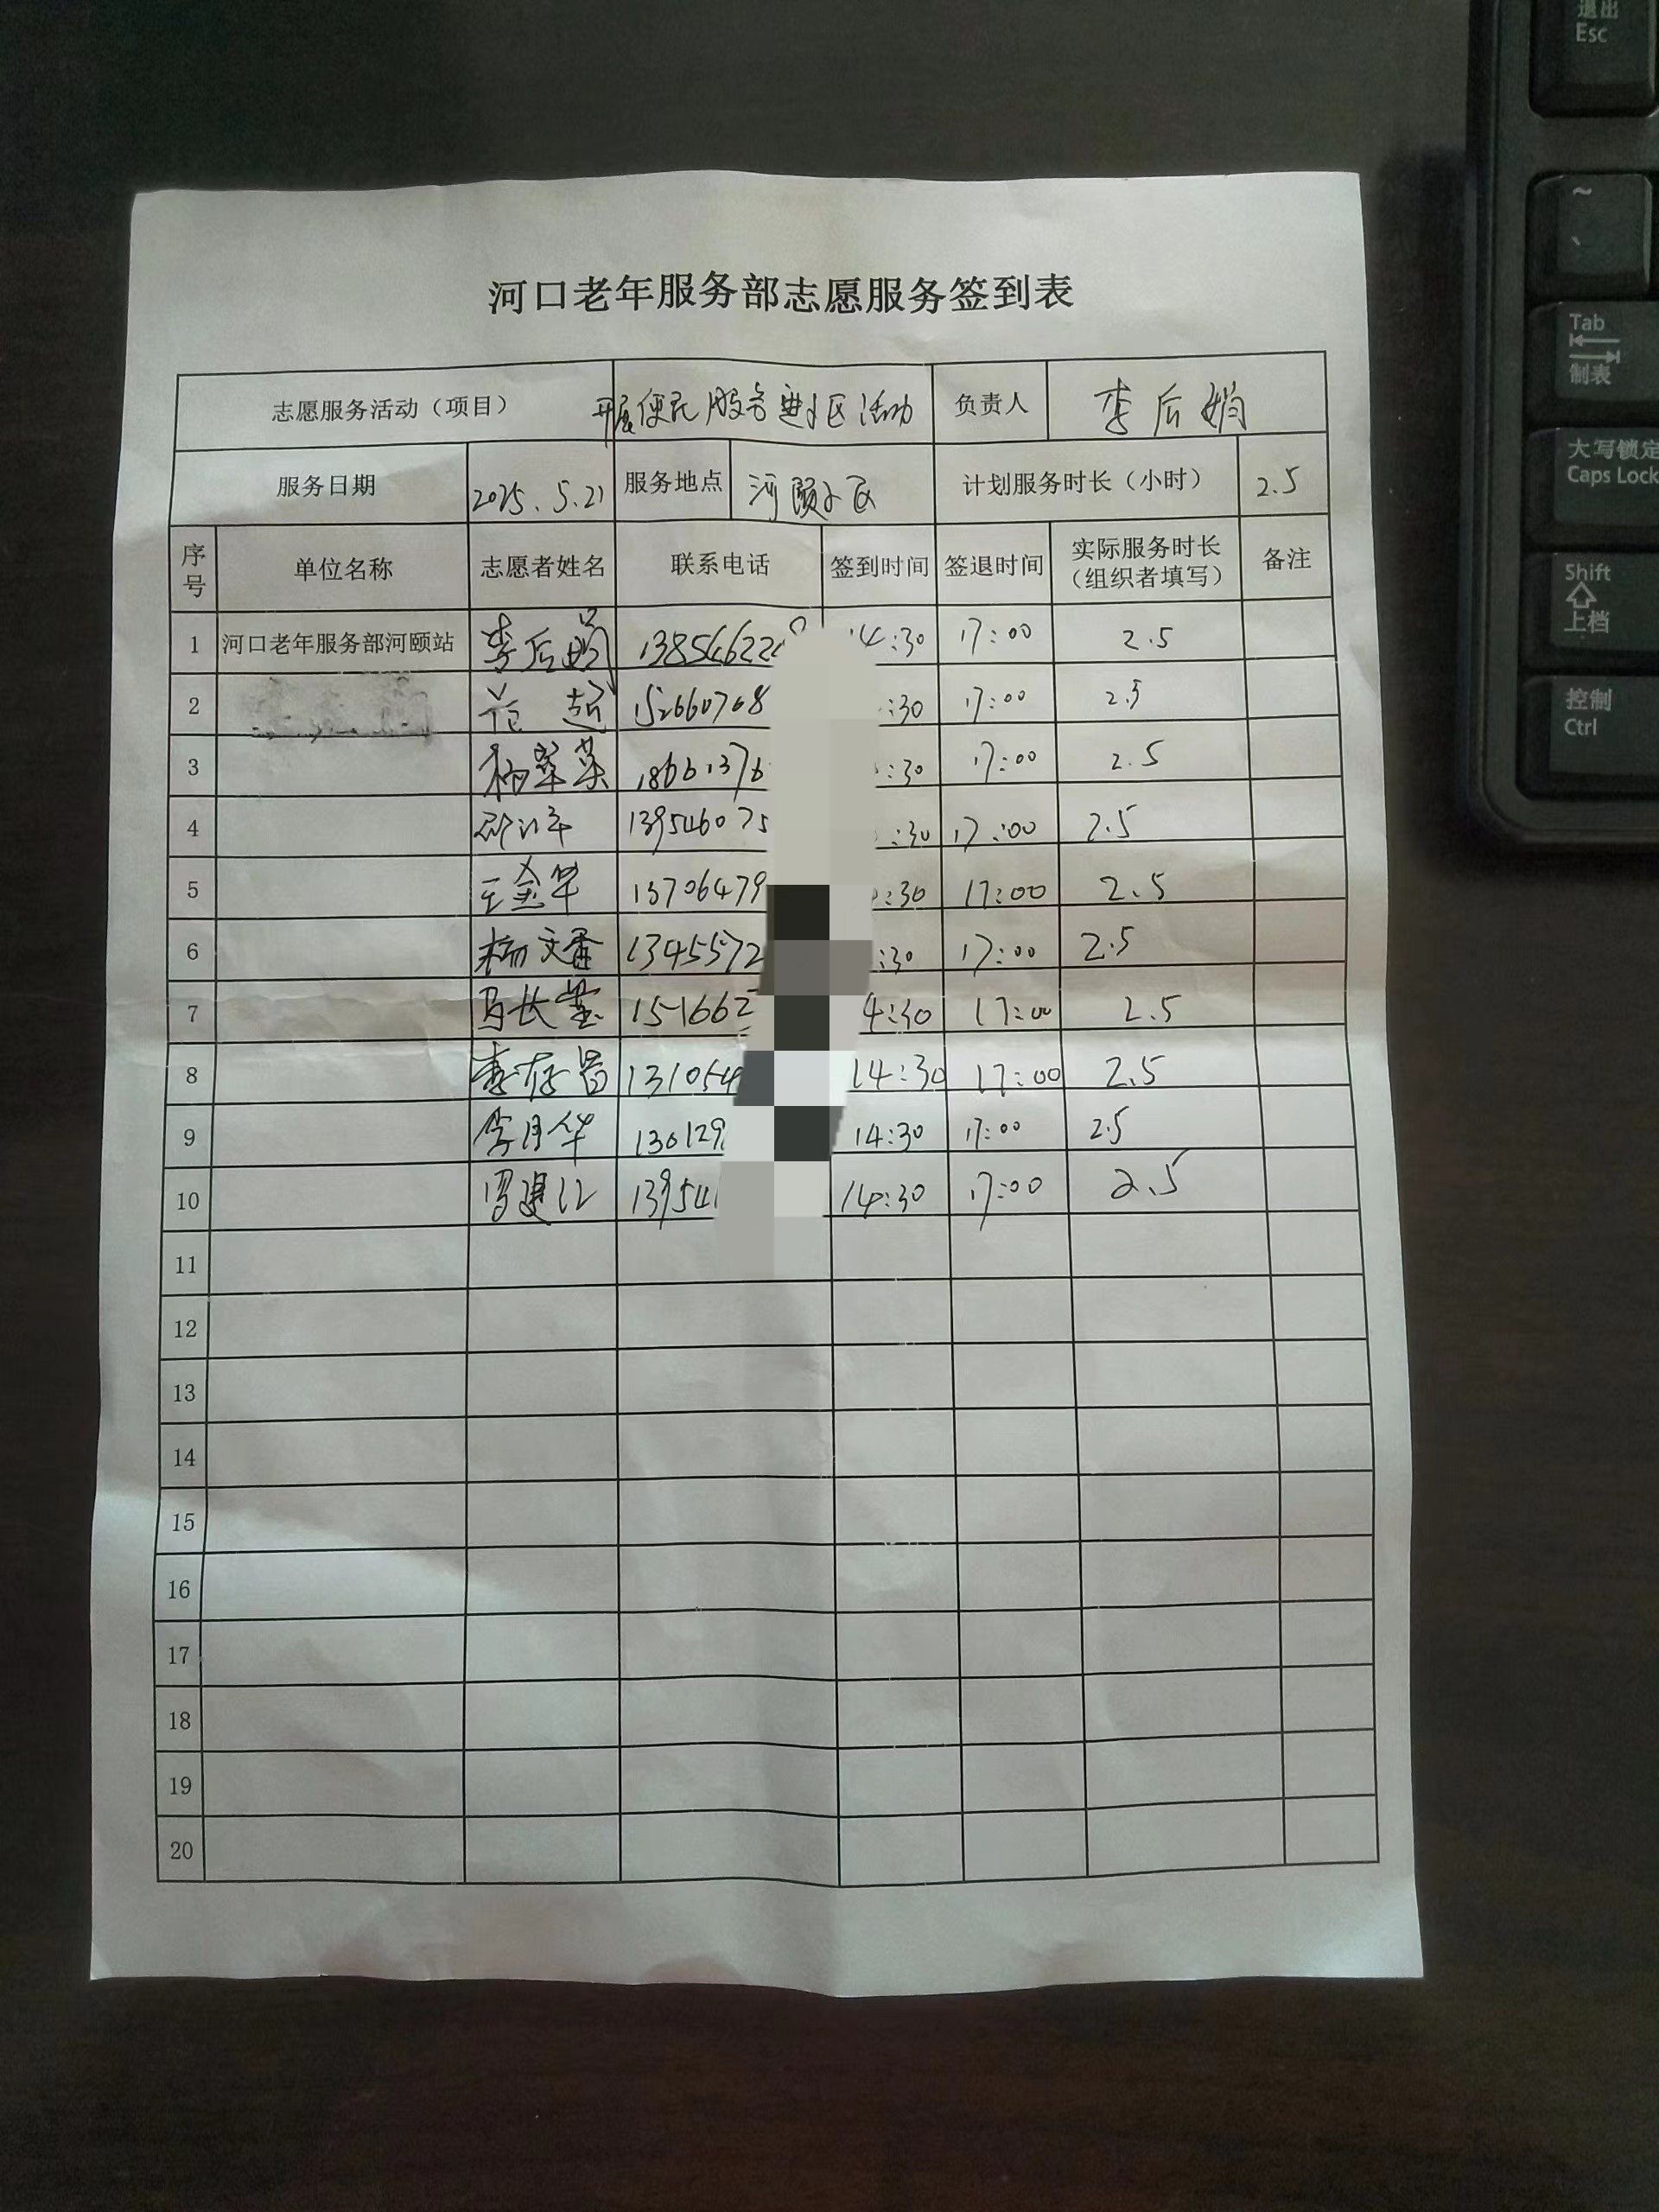 河口老年服务部志愿服务签到表
志愿服务活动（项目） 开展便民服务进小区活动 负责人 李后娟
服务日期 2025.5.21 服务地点 河颐小区 计划服务时长（小时） 2.5
序号 单位名称 志愿者姓名 联系电话 签到时间 签退时间 实际服务时长（组织者填写） 备注
1 河口老年服务部河颐站 李后娟 138546622 14:30 17:00 2.5
2 范超 152660768 :30 17:00 2.5
3 杨翠英 18661376 :30 17:00 2.5
4 139546075 :30 17:00 2.5
5 王金华 13706479 :30 17:00 2.5
6 杨文香 13455572 :30 17:00 2.5
7 马长 151662 4:30 17:00 2.5
8 李存昌 131054 14:30 17:00 2.5
9 李月华 130129 14:30 17:00 2.5
10 罗建江 13954 14:30 17:00 2.5
11
12
13
14
15
16
17
18
19
20
退出
Esc
~
、
Tab
制表
大写锁定
Caps Lock
Shift
上档
控制
Ctrl